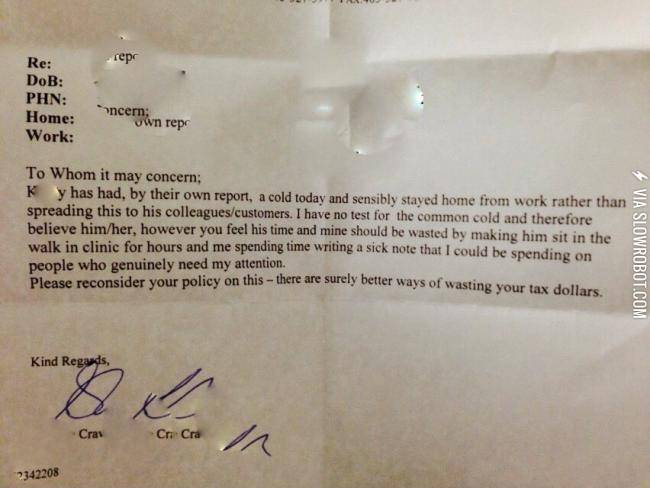 Re:
DoB:
PHN:
Home:
Work:
To Whom it may concern;
K y has had, by their own report, a cold today and sensibly stayed home from work rather than
spreading this to his colleagues/customers. I have no test for the common cold and therefore
believe him/her, however you feel his time and mine should be wasted by making him sit in the
walk in clinic for hours and me spending time writing a sick note that I could be spending on
people who genuinely need my attention.
Please reconsider your policy on this – there are surely better ways of wasting your tax dollars.
Kind Regards,
2342208
VIA SLOWROBOT.COM